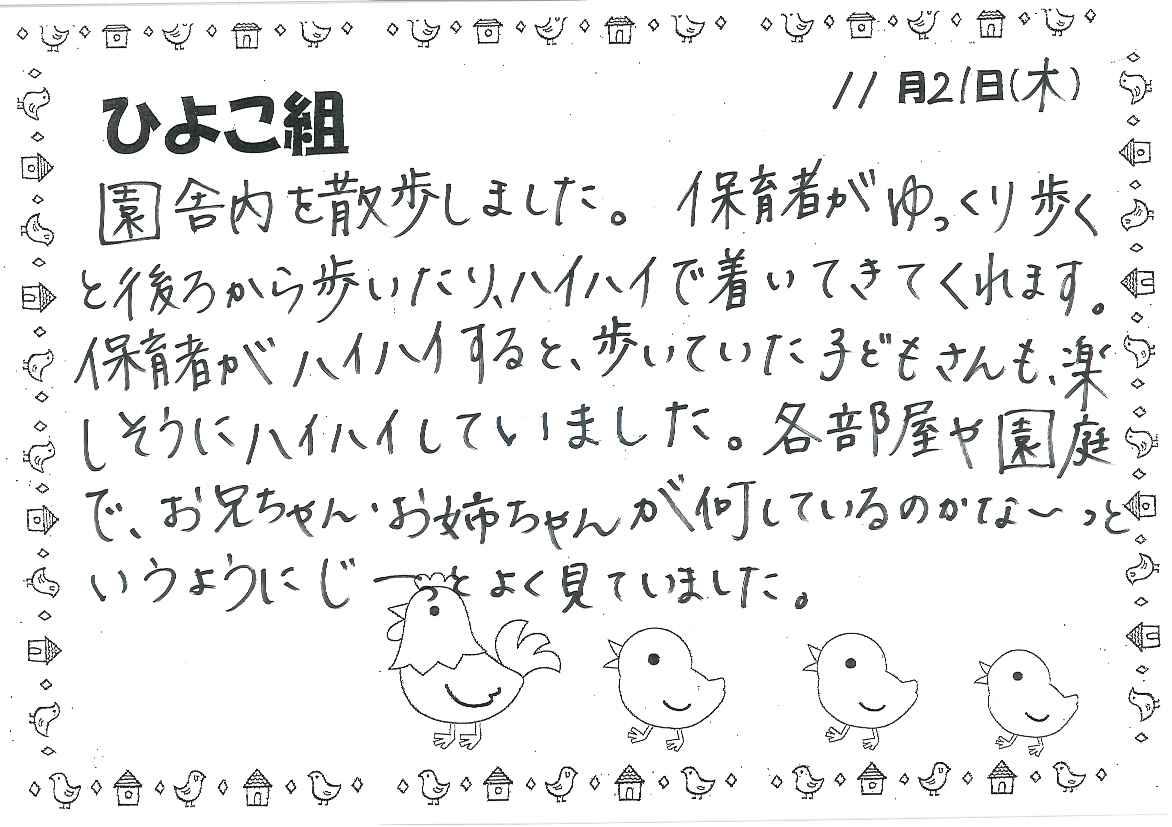 11月21日(木)
ひよこ組
園舎内を散歩しました。保育者がゆっくり歩く
と後ろから歩いたり、ハイハイで着いてきてくれます。
保育者がハイハイすると、歩いていた子どもさんも、楽
しそうにハイハイしていました。各部屋や園庭
で、お兄ちゃん・お姉ちゃんが何しているのかな〜っと
いうようにじーっとよく見ていました。